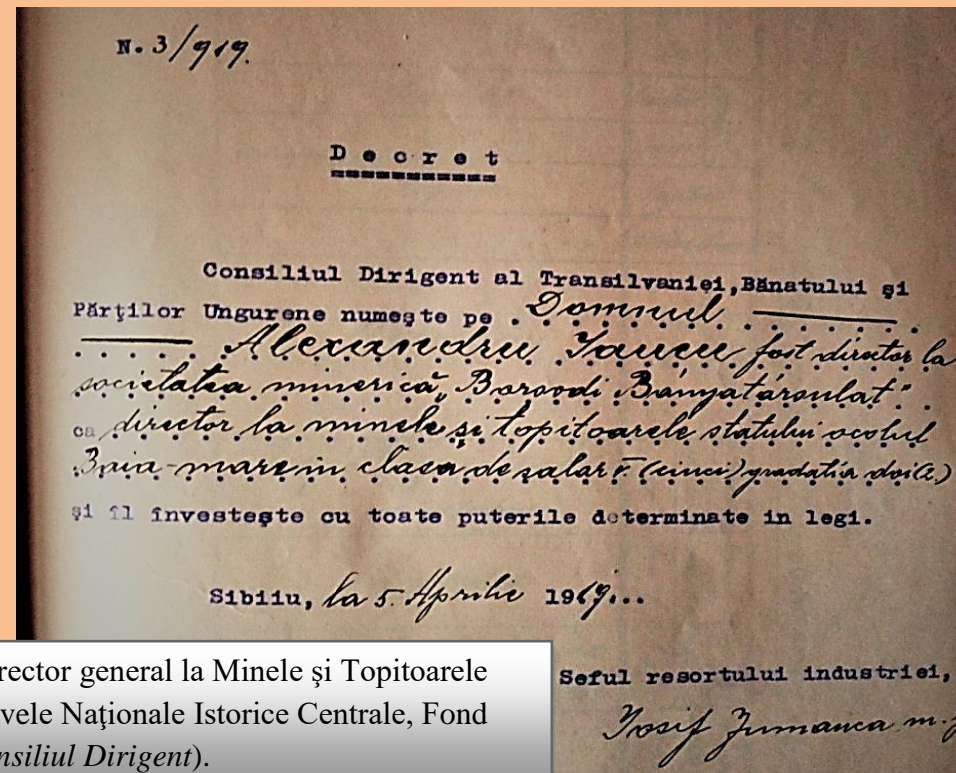 N. 3/919.
Decret
Consiliul Dirigent al Transilvaniei, Bănatului și
Părţilor Ungurene numește pe . Domnul
Alexandru Iancu fost director la
societatea minerică „Borsodi Bányatársulat"
ca director la minele și topitoarele statului ocolul
Baia-mare in clasa de salar V. (cinci) gradația doi (2.)
și îl învestește cu toate puterile determinate in legi.
Sibiiu, la 5. Aprilie 1919...
Seful resortului industriei,
Iosif Jumanca m.
rector general la Minele şi Topitoarele
vele Naţionale Istorice Centrale, Fond
nsiliul Dirigent).